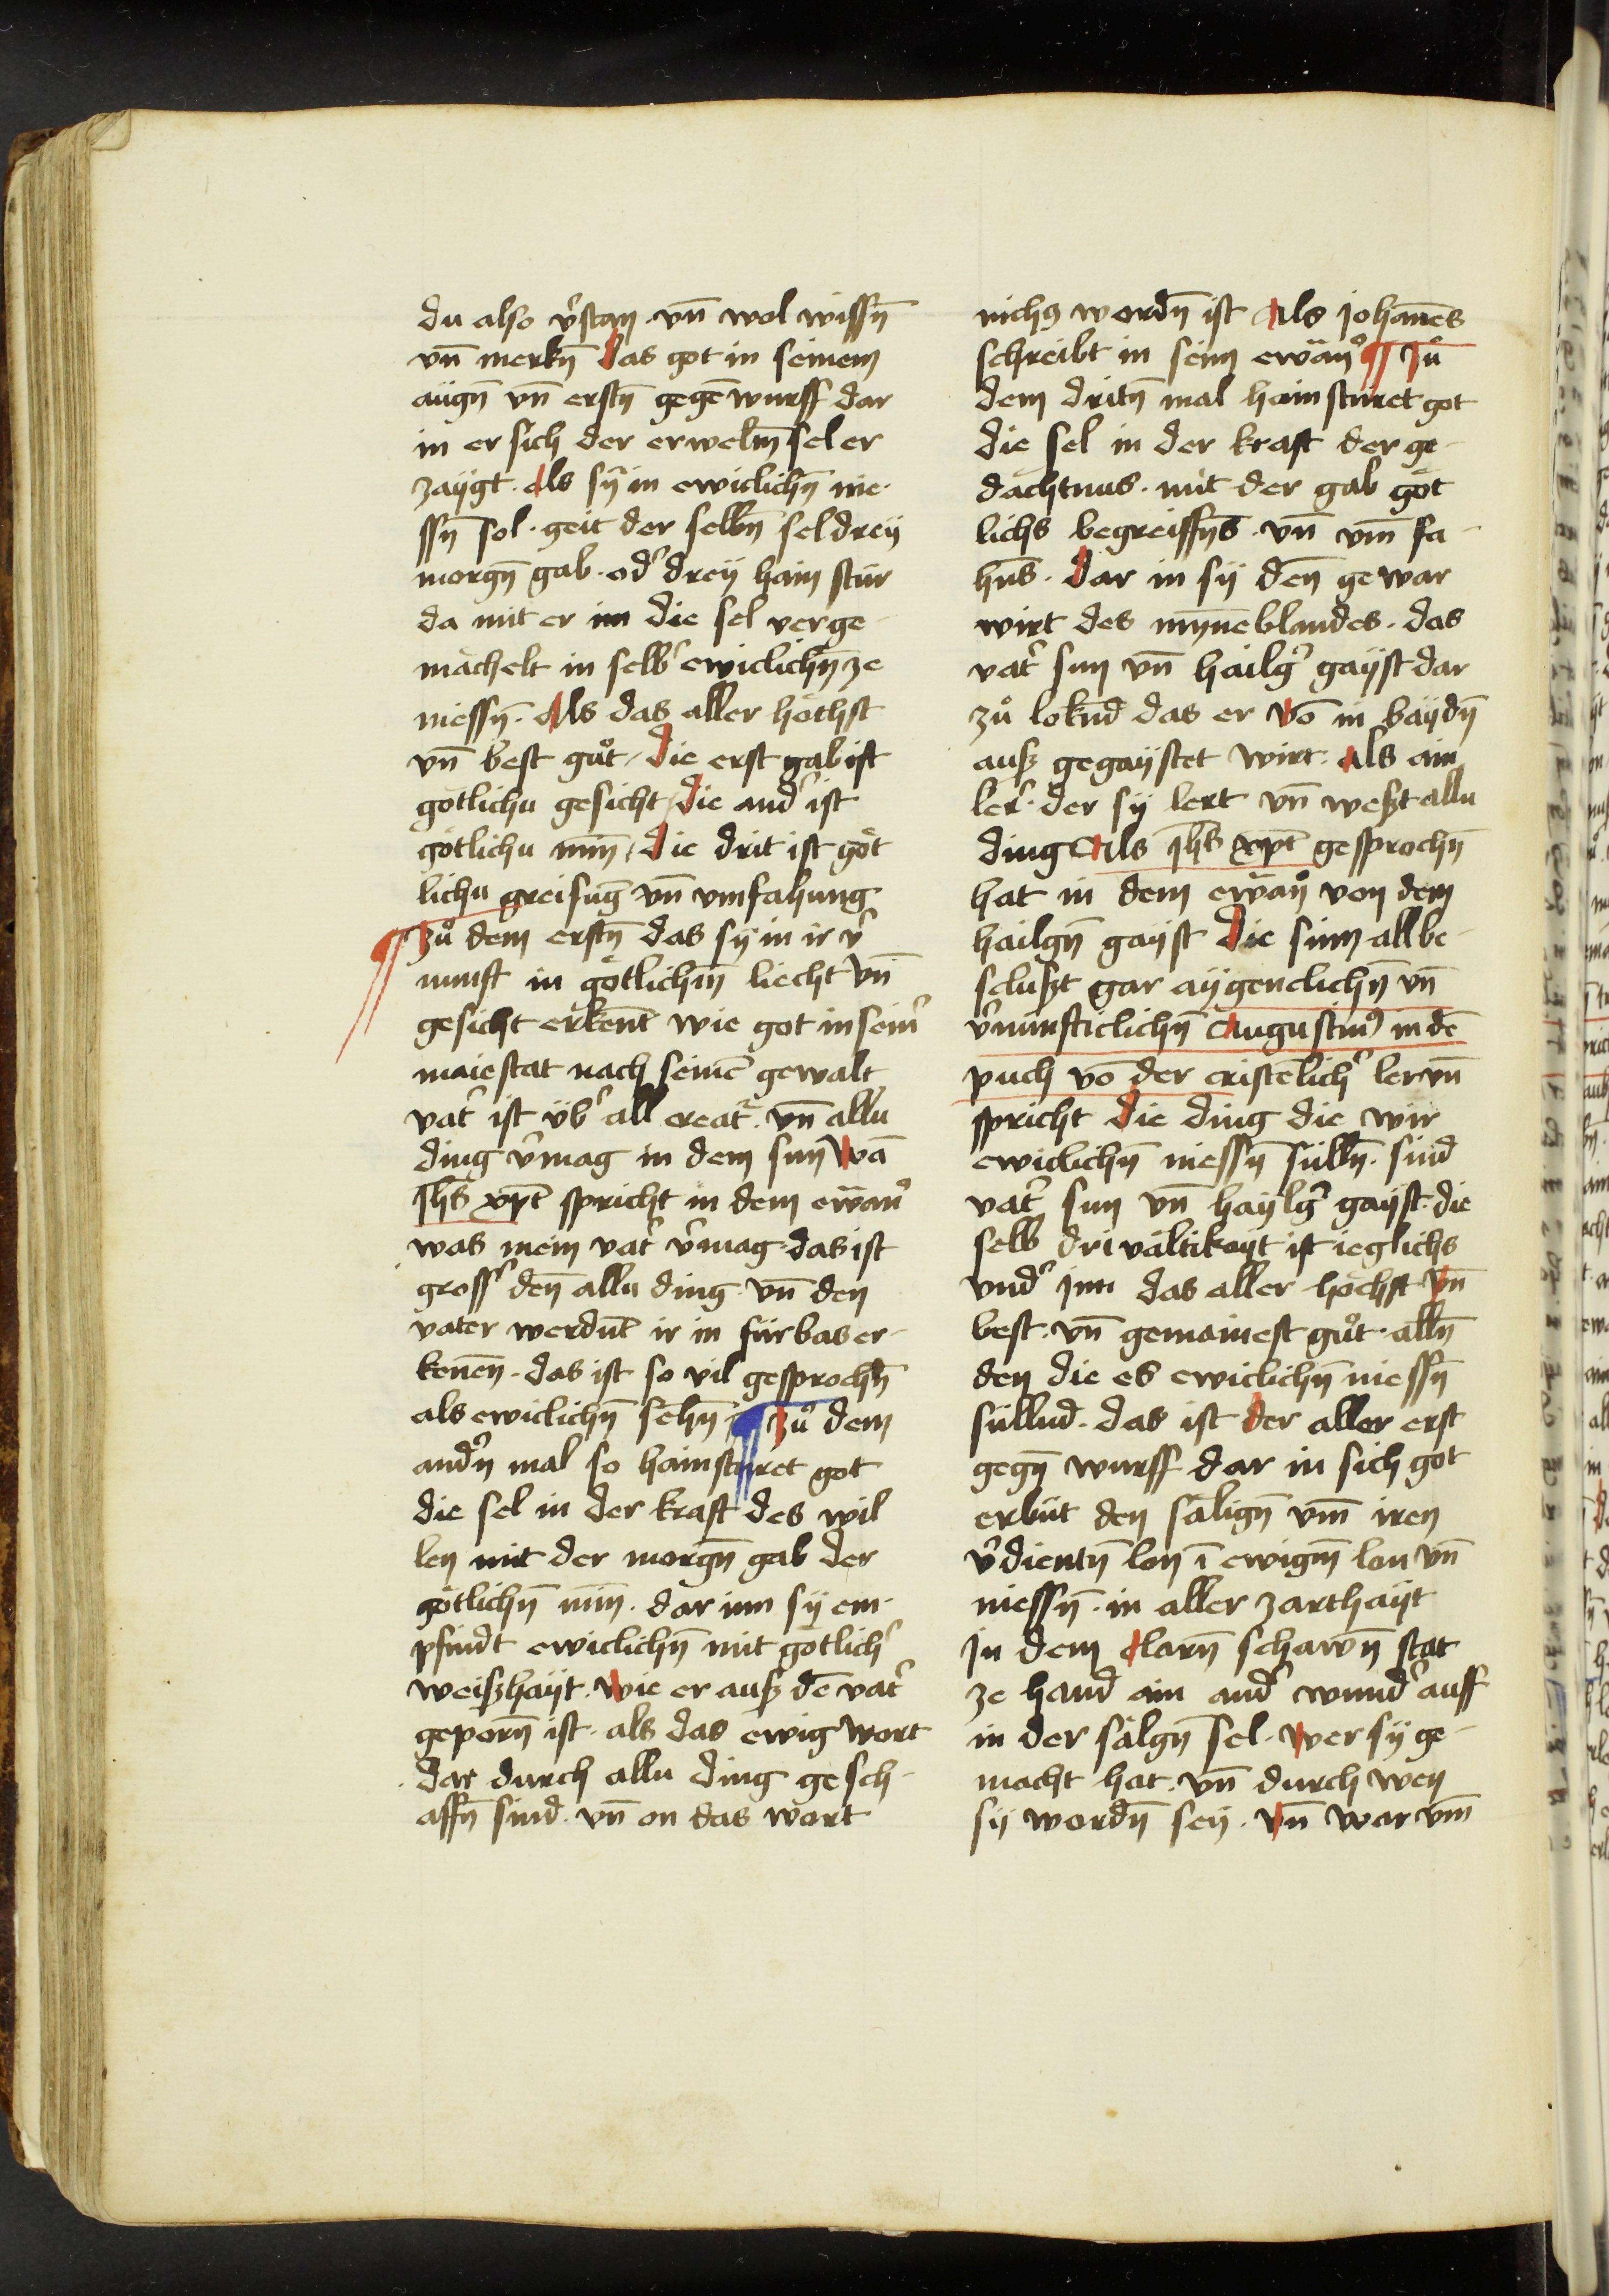 du also v̾stan · vn̄ wol wissn̄
vn̄ merkn̄ das got in seinem
augn̄ vn̄ erstn̄ gegē wurff dar
in er sich der erweltn̄ sel er
zaÿgt · Als sÿ in ewiclichn̄ nie-
ssn̄ sol · geit der selbn̄ sel dreÿ
morgn̄ gab · od̾ dreÿ haim stür
da mit er im die sel verge-
mächelt in selb̾ ewiclichn̄ ze
niessn̄ · Als das aller höchst
vn̄ best gůt / Die erst gab ist
götlichu gesicht / Die and̾ ist
götlichu min̄ / die drit ist göt
lichu greifūg vn̄ vmfahung
¶ Zů dem erstn̄ das sÿ in ir v̾
nunft in götlichm̄ liecht vn̄
gesicht erkent wie got in sein̾
maiestat nach seinē gewalt
vat̾ ist üb̾ all creat̾ · vn̄ allu
ding v̾mag in dem sun Wā
Jhs xpt spricht in dem ewāȷ̊
was mein vat̾ v̾mag · das ist
gross̾ den̄ allu ding · vn̄ den
vater werdūt ir in fürbas er-
kenen̄ · das ist so vil gesprochn̄
als ewiclichn̄ sehn̄ ¶ Zů dem
andn̾ mal so haimstüret got
die sel in der kraft des wil
len mit der morgn̄ gab der
götlichn̄ min̄ · dar inn sÿ em-
pfindt ewiclichn̄ mit götlich̾
weißhaÿt · wie er auß dē vat̾
geporn̄ ist · als das ewig wort
dar durch allu ding gesch-
affn̄ sind · vn̄ on das wort
nichꝫ wordn̄ ist Als johan̄es
schreibt in seim ewāȷ̊ ¶ Zů
dem dritn̄ mal haimstüret got
die sel in der kraft der ge-
dächtnus · mit der gab göt
lichs begreiffn̄s · vn̄ vm̄ fa-
hn̄s · Dar in sÿ den̄ gewar
wirt des mÿnēblandes · das
vat̾ sun vn̄ hailg̾ gaÿst dar
zů loknd das er vō in baÿdn̄
auß gegaÿstet wirt · Als ain
ler̾ · der sÿ lert vn̄ weßt allu
ding Als Jhs xpt gesprochn̄
hat in dem ewāȷ̊ von dem
hailgn̄ gaÿst Die sinn all be-
slußt gar aÿgenclichn̄ vn̄
v̾nünfticlichn̄ Augustin9 in dē
puch vō der cristēlich̾ ler vn̄
spricht Die ding die wir
ewiclichn̄ niessn̄ sülln̄ · sind
vat̾ sun vn̄ haÿlg̾ gaÿst · die
selb drivältikaÿt ist ieglichs
vnd̾ inn das aller höchst vn̄
best · vn̄ gemainest gůt · alln̄
den die es ewiclichn̄ niessn̄
süllnd · das ist der aller erst
gegn̄ wurff dar in sich got
erbüt den sälign̄ vm̄ iren
v̾dientn̄ lon ī ewigm̄ lon vn̄
niessn̄ · in aller zarthaÿt
In dem clarn̄ schawn̄ stat
ze hand ain and̾ wund̾ auff
in der sälgn̄ sel · Wer sÿ ge-
macht hat · vn̄ durch wen
sÿ wordn̄ seÿ · Vn̄ war vm̄